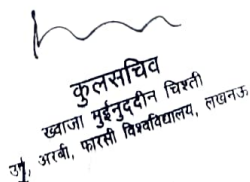 कुलसचिव
ख्वाजा मुईनुद्दीन चिश्ती
उर्दू, अरबी, फारसी विश्वविद्यालय, लखनऊ